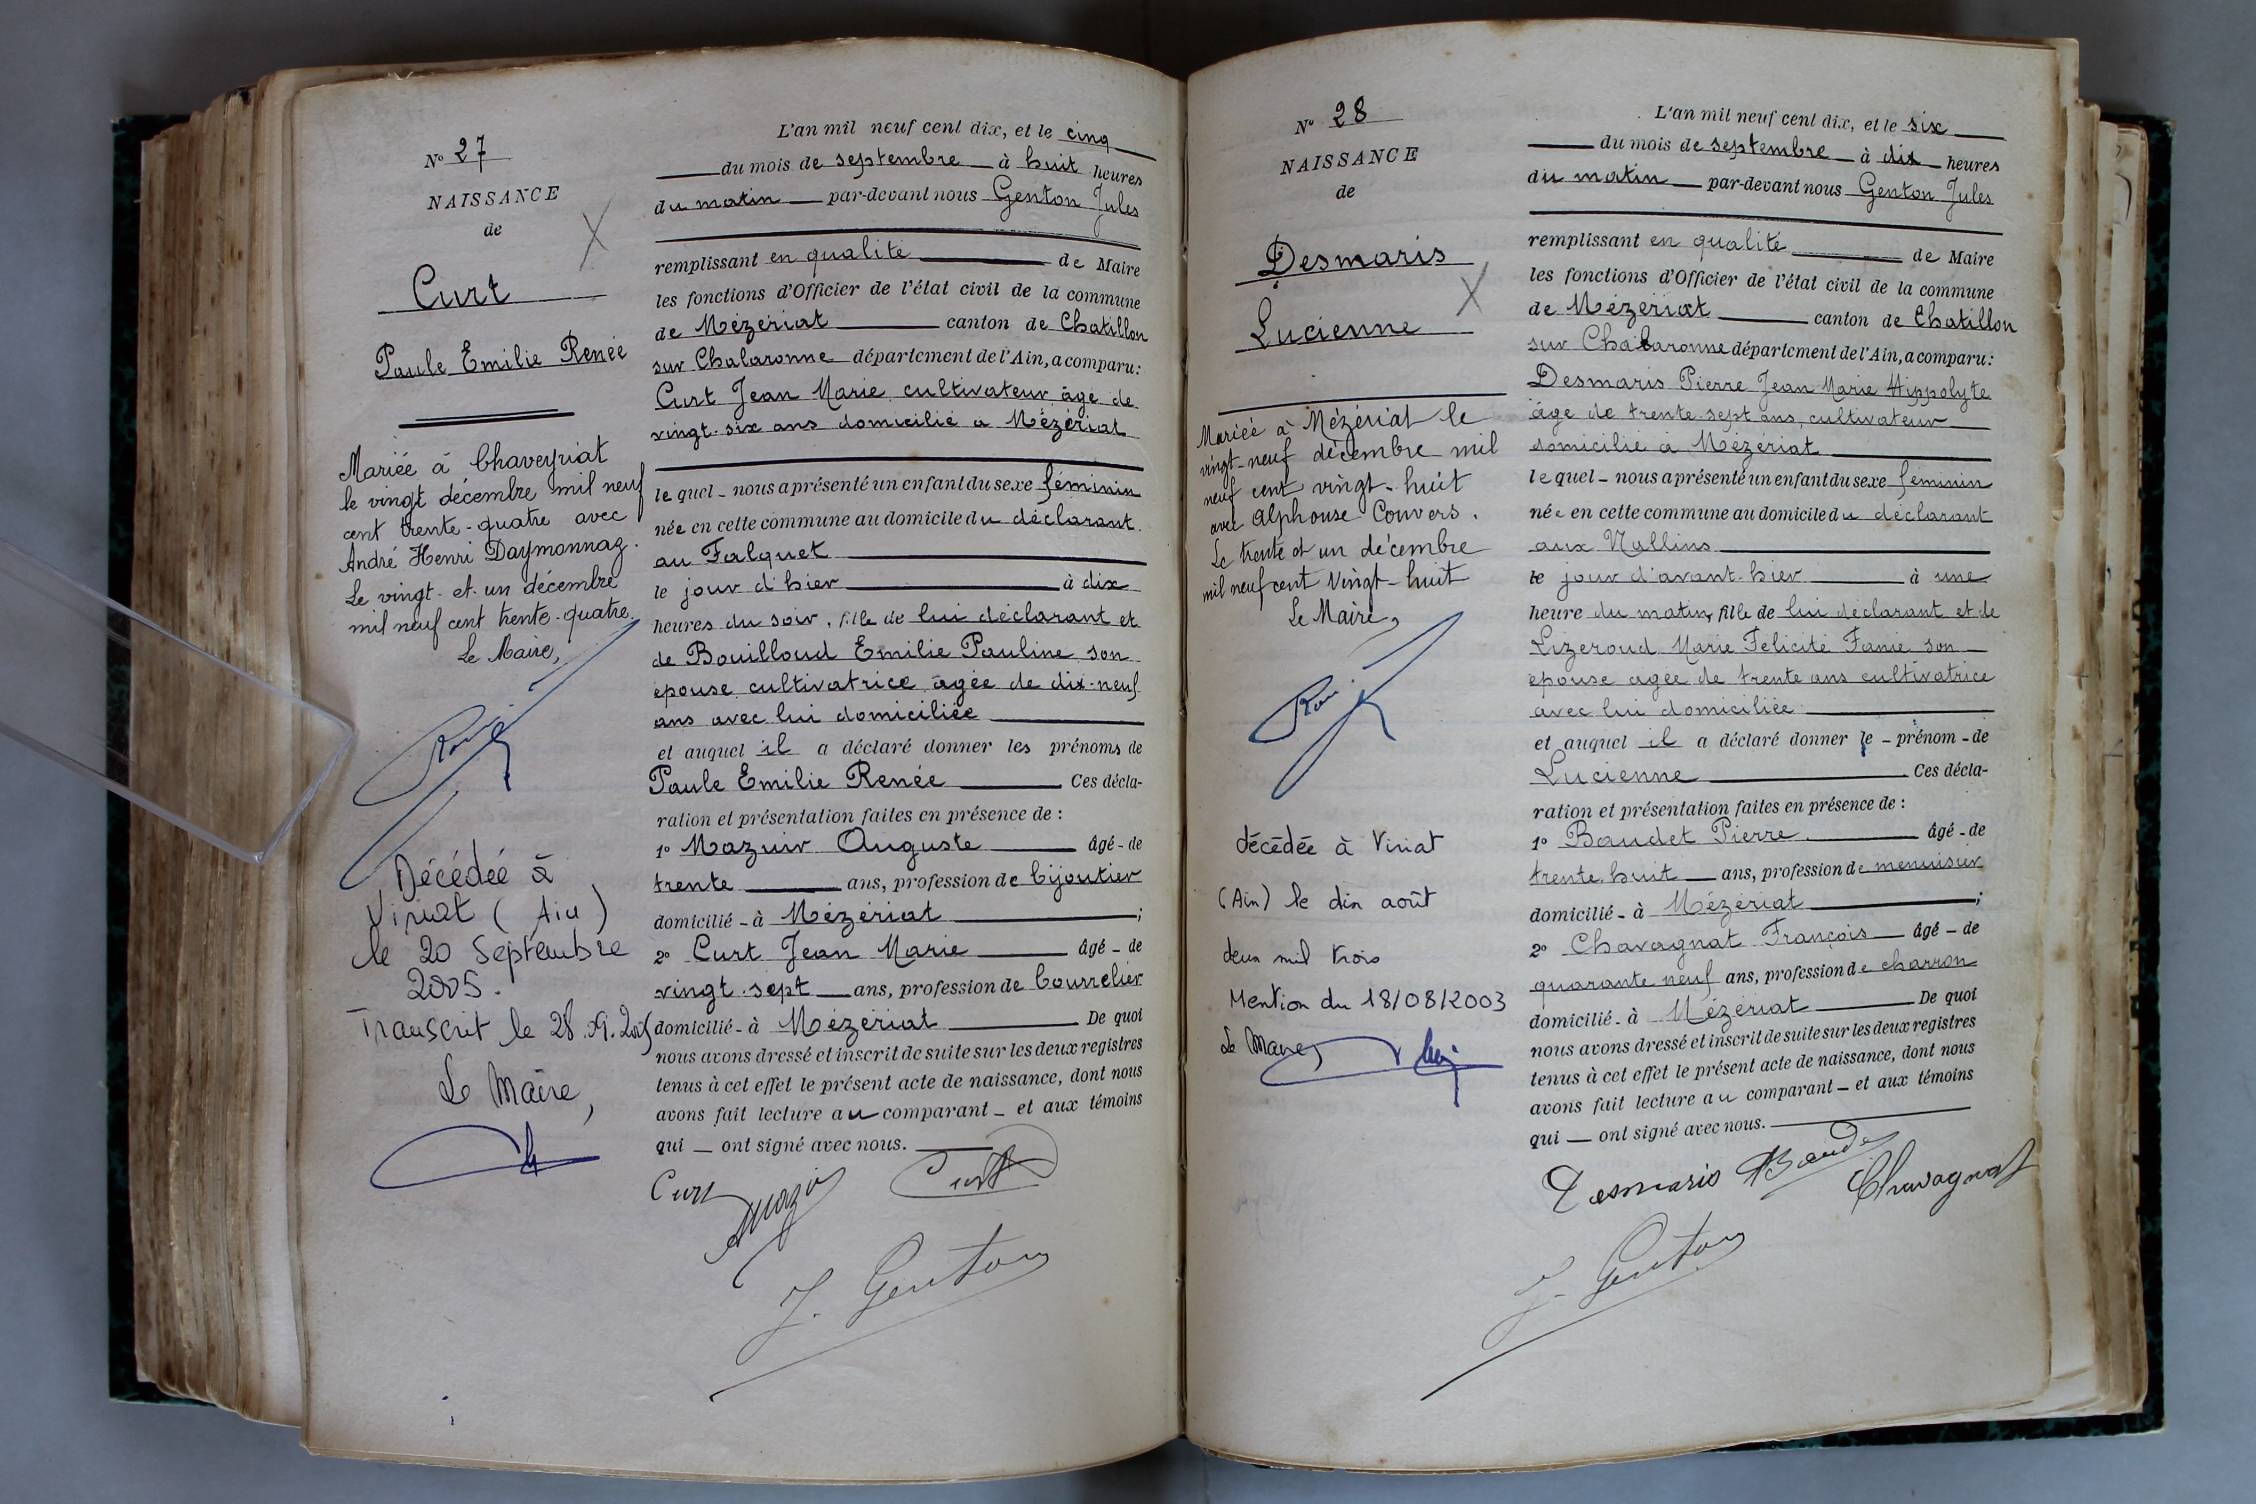 N° 27
NAISSANCE
de
Curt
Paule Emilie Renée
Mariée à Chaveyriat
le vingt décembre mil neuf
cent trente-quatre avec
André Henri Daymonnaz.
Le vingt-et-un décembre
mil neuf cent trente-quatre.
Le Maire,
Décédée à
Viriat (Ain)
le 20 Septembre
2005.
Transcrit le 28.09.2005
Le Maire,
L'an mil neuf cent dix, et le cinq
du mois de septembre à huit heures
du matin par-devant nous Genton Jules
remplissant en qualité de Maire
les fonctions d'Officier de l'état civil de la commune
de Mézériat canton de Chatillon
sur Chalaronne département de l'Ain, a comparu:
Curt Jean Marie cultivateur âgé de
vingt-six ans domicilié à Mézériat
lequel - nous a présenté un enfant du sexe féminin
née en cette commune au domicile du déclarant
au Falquet
le jour d'hier à dix
heures du soir, fille de lui déclarant et
de Bouilloud Emilie Pauline son
épouse cultivatrice âgée de dix-neuf
ans avec lui domiciliée
et auquel il a déclaré donner les prénoms de
Paule Emilie Renée Ces décla-
ration et présentation faites en présence de :
1° Mazuir Auguste âgé - de
trente ans, profession de bijoutier
domicilié - à Mézériat ;
2° Curt Jean Marie âgé - de
vingt-sept ans, profession de bourrelier
domicilié - à Mézériat De quoi
nous avons dressé et inscrit de suite sur les deux registres
tenus à cet effet le présent acte de naissance, dont nous
avons fait lecture au comparant - et aux témoins
qui — ont signé avec nous.
Curt Curt
J. Genton
N° 28
NAISSANCE
de
Desmaris
Lucienne
Mariée à Mézériat le
vingt-neuf décembre mil
neuf cent vingt-huit
avec Alphonse Convers.
Le trente et un décembre
mil neuf cent vingt-huit
Le Maire,
décédée à Viriat
(Ain) le dix août
deux mil trois
Mention du 18/08/2003
Le Maire,
L'an mil neuf cent dix, et le six
du mois de septembre à dix heures
du matin par-devant nous Genton Jules
remplissant en qualité de Maire
les fonctions d'Officier de l'état civil de la commune
de Mézériat canton de Chatillon
sur Chalaronne département de l'Ain, a comparu:
Desmaris Pierre Jean Marie Hippolyte
âgé de trente-sept ans, cultivateur
domicilié à Mézériat
lequel - nous a présenté un enfant du sexe féminin
née en cette commune au domicile du déclarant
aux Nallins
le jour d'avant-hier à une
heure du matin, fille de lui déclarant et de
Lizeroud Marie Félicité Fanie son
épouse agée de trente ans cultivatrice
avec lui domiciliée
et auquel il a déclaré donner le - prénom - de
Lucienne Ces décla-
ration et présentation faites en présence de :
1° Baudet Pierre âgé - de
trente-huit ans, profession de menuisier
domicilié - à Mézériat ;
2° Chavagnat François âgé - de
quarante neuf ans, profession de charron
domicilié - à Mézériat De quoi
nous avons dressé et inscrit de suite sur les deux registres
tenus à cet effet le présent acte de naissance, dont nous
avons fait lecture au comparant - et aux témoins
qui — ont signé avec nous.
Desmaris Baudet Chavagnat
J. Genton